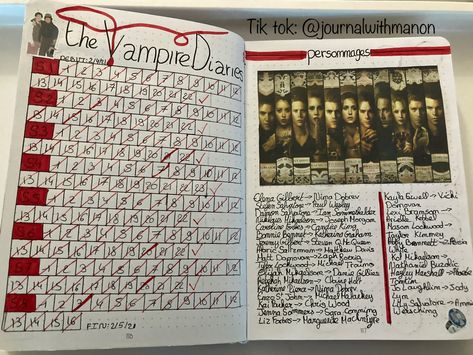 Tik tok: @journalwithmanon
the Vampire Diaries
DEBUT: 2/4/21
S.1 1 2 3 4 5 6 7 8 9 10 11 12
13 14 15 16 17 18 19 20 21 22
S.2 1 2 3 4 5 6 7 8 9 10 11 12
13 14 15 16 17 18 19 20 21 22
S.3 1 2 3 4 5 6 7 8 9 10 11 12
13 14 15 16 17 18 19 20 21 22
S.4 1 2 3 4 5 6 7 8 9 10 11 12
13 14 15 16 17 18 19 20 21 22 23
1 2 3 4 5 6 7 8 9 10 11 12
13 14 15 16 17 18 19 20 21 22
1 2 3 4 5 6 7 8 9 10 11 12
13 14 15 16 17 18 19 20 21 22
1 2 3 4 5 6 7 8 9 10 11 12
13 14 15 16 17 18 19 20 21 22
1 2 3 4 5 6 7 8 9 10 11 12
13 14 15 16
FIN: 2/5/21
personnages
Elena Gilbert → Nina Dobrev
Stefan Salvatore → Paul Wesley
Damon Salvatore → Ian Sommerhalder
Niklaus Mikaelson → Joseph Morgan
Caroline Forbes → Candice King
Bonnie Bennett → Katherine Graham
Jeremy Gilbert → Steven R. McQueen
Alaric Saltzman → Matthew Davis
Matt Donovan → Zach Roerig
Tyler Lockwood → Michael Trevino
Elijah Mikaelson → Daniel Gillies
Rebekah Mikaelson → Claire Holt
Katherine Pierce → Nina Dobrev
Enzo St. John → Michael Malarkey
Kai Parker → Chris Wood
Jenna Sommers → Sara Canning
Liz Forbes → Marguerite MacIntyre
Kayla Ewell → Vicki
Donovan
Lexi Branson →
Arielle Kebbel
Mason Lockwood →
Taylor Kinney
Abby Bennett → Persia
White
Kol Mikaelson →
Nathaniel Buzolic
Hayley Marshall → Phoebe
Tonkin
Jo Laughlin → Jody
Lyn
Lily Salvatore → Annie
Wersching